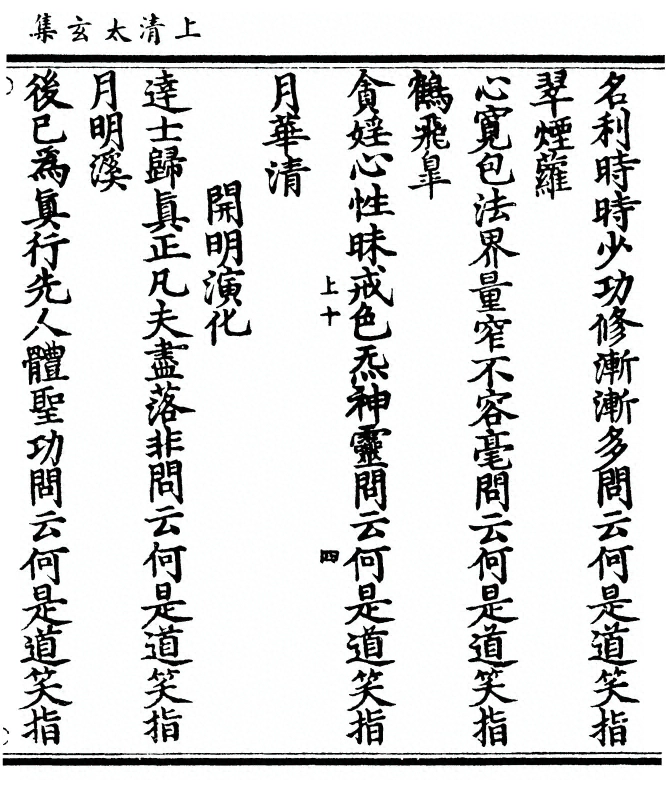 上清太玄集
名利時時少功修漸漸多問云何是道笑指
翠煙蘿
心寬包法界量窄不容毫問云何是道笑指
鶴飛皐
貪婬心性昧戒色炁神靈問云何是道笑指
上十
四
月華清
開明演化
達士歸真正凡夫盡落非問云何是道笑指
月明溪
後已為真行先人體聖功問云何是道笑指